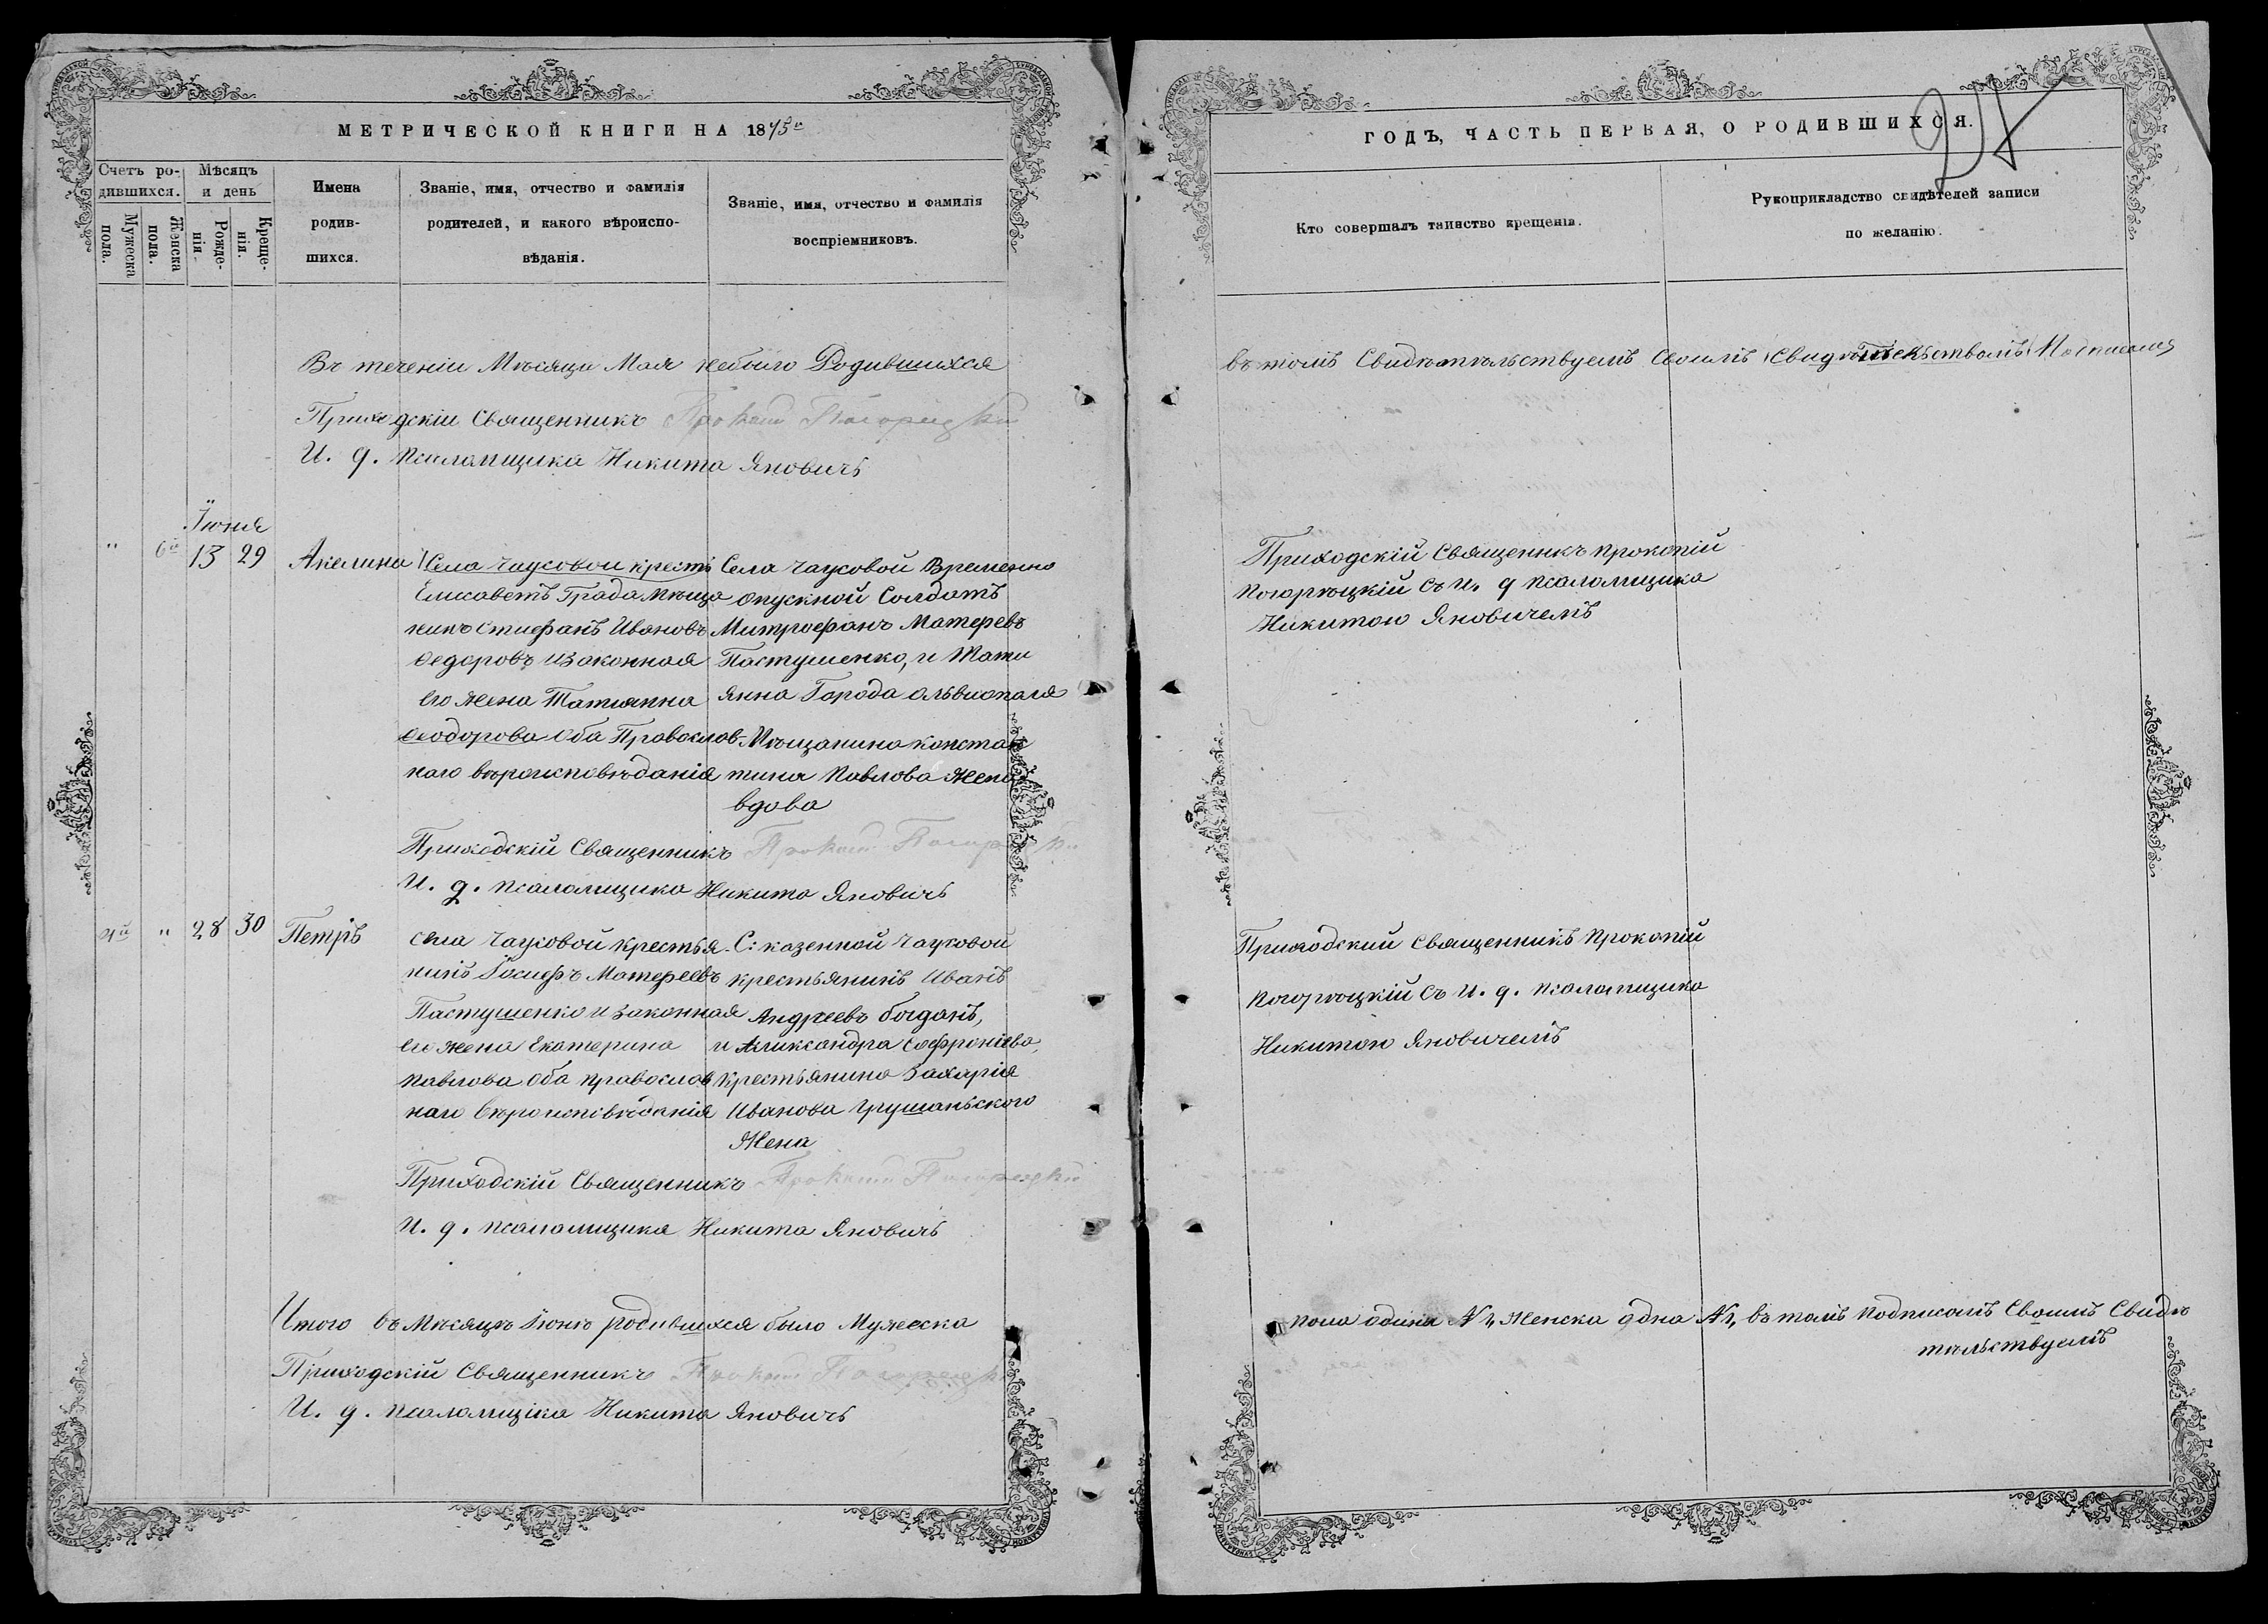 МЕТРИЧЕСКОЙ КНИГИ НА 1875й
Счетъ ро-
дившихся.
Мѣсяцъ
и день
Мужеска
пола.
Женска
пола.
Рожде-
нія.
Креще-
нія.
Имена
родив-
шихся.
Званіе, имя, отчество и фамилія
родителей, и какого вѣроиспо-
вѣданія.
Званіе, имя, отчество и фамилія
воспріемниковъ.
Въ теченіи Мѣсяца Мая небыло Родившихся
Приходскій Священникъ
И. д. Псаломщика Никита Яновичъ
Іюня
" 6й 13 29
Акелина
Села Чаусовой крестъ
Елисаветъ Града Мѣща
никъ Стиефанъ Ивановъ
Федоровъ и законная
его жена Татиянна
Феодорова оба Православ-
наго вѣроисповѣданія
Села Чаусовой Временно
опускной Солдатъ
Митрофанъ Матфеевъ
Пастушенко, и Тати
янна Города Ольвиополя
Мѣщанина констан
тина Павлова жена
вдова
Приходскій Священникъ
И. д. псаломщика Никита Яновичъ
4й " 28 30
Петръ
Села Чаусовой Крестья
нинъ Іосифъ Матфеевъ
Пастушенко и законная
его жена Екатерина
Павлова оба православ
наго вѣроисповѣданія
С: казенной Чаусовой
крестьянинъ Иванъ
Андреевъ богданъ,
и Аликсандра Софроніева,
Крестьянина Захарія
Иванова Грушаньского
Жена
Приходскій Священникъ
И. д. псаломщика Никита Яновичъ
Итого въ Мѣсяцѣ Іюнѣ родившихся было Мужеска
Приходскій Священникъ
И. д. псаломщіка Никита Яновичъ
ГОДЪ, ЧАСТЬ ПЕРВАЯ, О РОДИВШИХСЯ.
24
Кто совершалъ таинство крещенія.
Рукоприкладство свидѣтелей записи
по желанію.
въ томъ Свидѣтѣльствуемъ Своимъ
Приходскій Священикъ Прокопій
Погорѣцкій съ И. д псаломщика
Никитою Яновичемъ
Приходский Священникъ Прокопій
Погорѣцкій съ И. д. псаломщика
Никитою Яновичемъ
пола одинъ №1, Женска одна №1, въ томъ подписомъ Своимъ Свидѣ
тѣльствуемъ